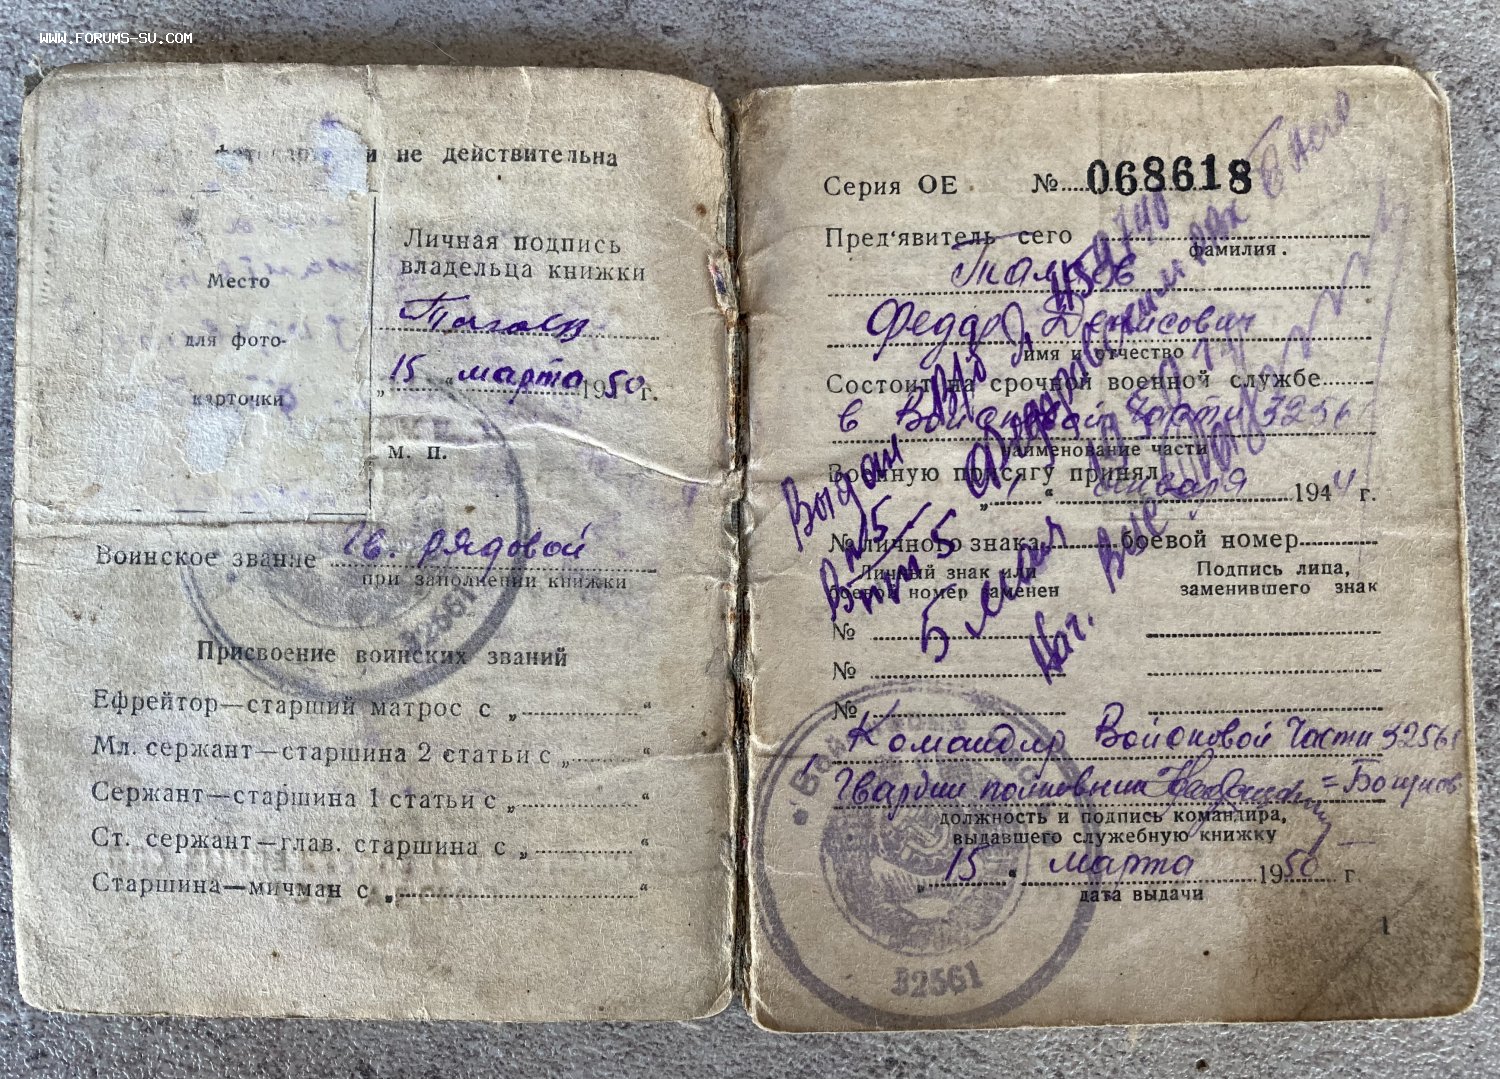 WWW.FORUMS-SU.COM
и не действительна
Личная подпись
владельца книжки
Место
для фото-
карточки
„15 “ марта 1950 г.
М. П.
Воинское звание Гв. рядовой
при заполнении книжки
32561
Присвоение воинских званий
Ефрейтор—старший матрос с „ “
Мл. сержант—старшина 2 статьи с „ “
Сержант—старшина 1 статьи с „ “
Ст. сержант—глав. старшина с „ “
Старшина—мичман с „ “
Серия ОЕ № 068618
Пред'явитель сего
фамилия.
Федор Денисович
имя и отчество
Состоит на срочной военной службе
в Войсковой части 32561
наименование части
Военную присягу принял
„ “ января 1944 г.
№ личного знака боевой номер
Личный знак или
боевой номер заменен
Подпись лица,
заменившего знак
№
№
№
Выдан
5 мая
Нач.
Командир Войсковой Части 32561
Гвардии полковник
должность и подпись командира,
выдавшего служебную книжку
„ 15 “ марта 1950 г.
дата выдачи
1
32561